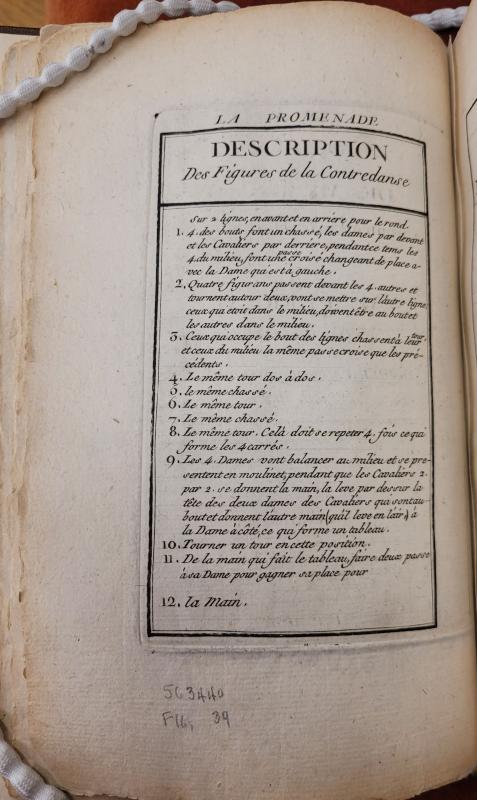 LA PROMENADE
DESCRIPTION
Des Figures de la Contredanse
Sur 2 lignes, en avant et en arriere pour le rond.
1. 4. des bouts font un chassé, les dames par devant
et les Cavaliers par derriere, pendant ce tems les
4. du milieu, font une passe croisé changeant de place a-
vec la Dame qui est à gauche.
2. Quatre figurans passent devant les 4. autres et
tournent autour deux, vont se mettre sur l'autre ligne,
ceux qui etoit dans le milieu, doivent être au bout et
les autres dans le milieu.
3. Ceux qui occupe le bout des lignes chassent à leur tour,
et ceux du milieu la même passe croise que les pré-
cédents.
4. Le même tour dos à dos.
5. le même chassé.
6. Le même tour.
7. Le même chassé.
8. Le même tour. Celà doit se repeter 4. fois ce qui
forme les 4 carrés.
9. Les 4. Dames vont balancer au milieu et se pre-
sentent en moulinet, pendant que les Cavaliers 2.
par 2. se donnent la main, la leve par dessur la
tête des deux dames des Cavaliers qui sont au
bout et donnent l'autre main (qu'il leve en l'air) à
la Dame à côté, ce qui forme un tableau.
10. Tourner un tour en cette position.
11. De la main qui fait le tableau, faire deux passe
à sa Dame pour gagner sa place pour
12. la Main.
563440
F16, 39